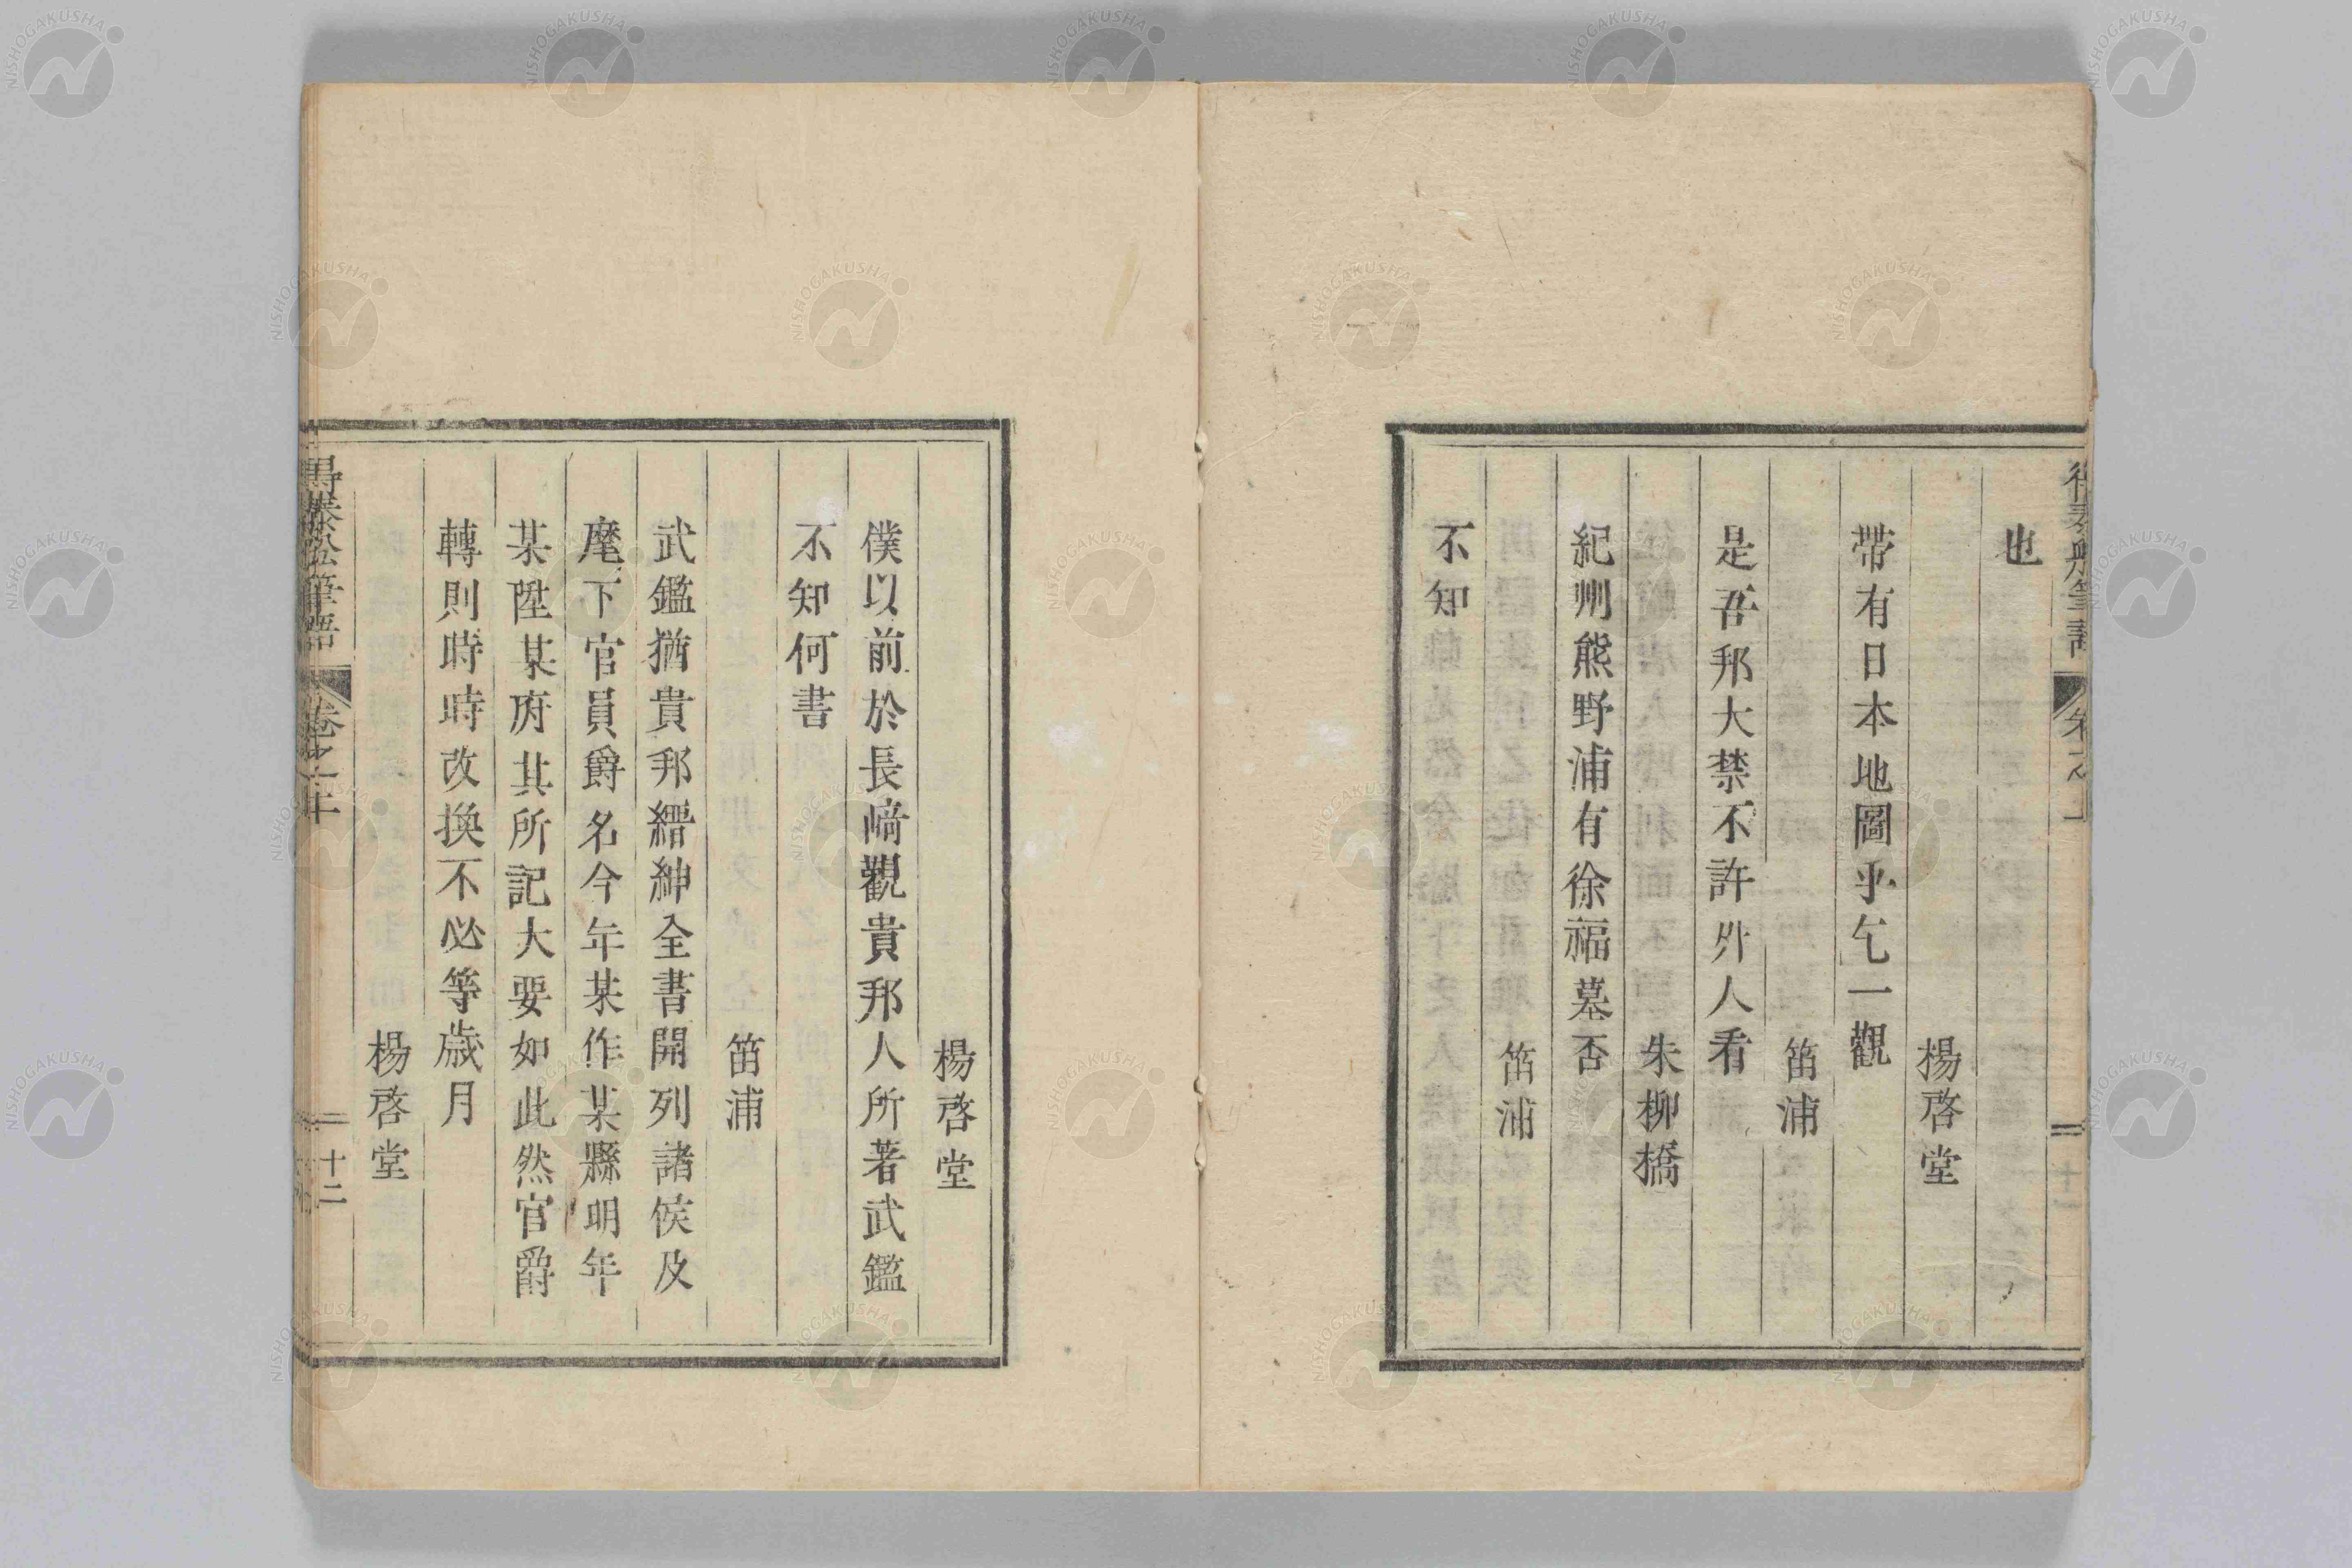 也
楊啓堂
帶有日本地圖乎乞一觀
笛浦
是吾邦大禁不許外人看
朱柳橋
紀州熊野浦有徐福墓否
笛浦
不知
十一
楊啓堂
僕以前於長崎觀貴邦人所著武鑑
不知何書
笛浦
武鑑猶貴邦縉紳全書開列諸侯及
麾下官員爵名今年某作某縣明年
某陞某府其所記大要如此然官爵
轉則時時改換不必等歲月
楊啓堂
筆語
卷之上
十二
NISHOGAKUSHA